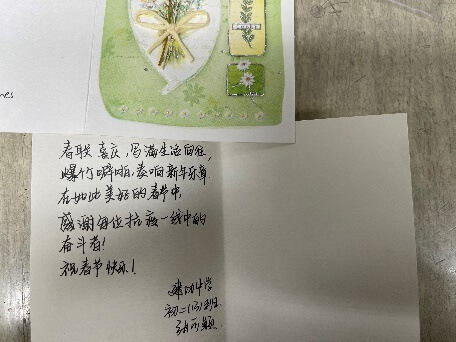 nes
春联喜庆,写满生活向往,
爆竹噼啪,奏响新年乐章
在如此美好的春节中,
感谢每位抗疫一线中的
奋斗者!
祝春节快乐!
建功中学
初二(13)班